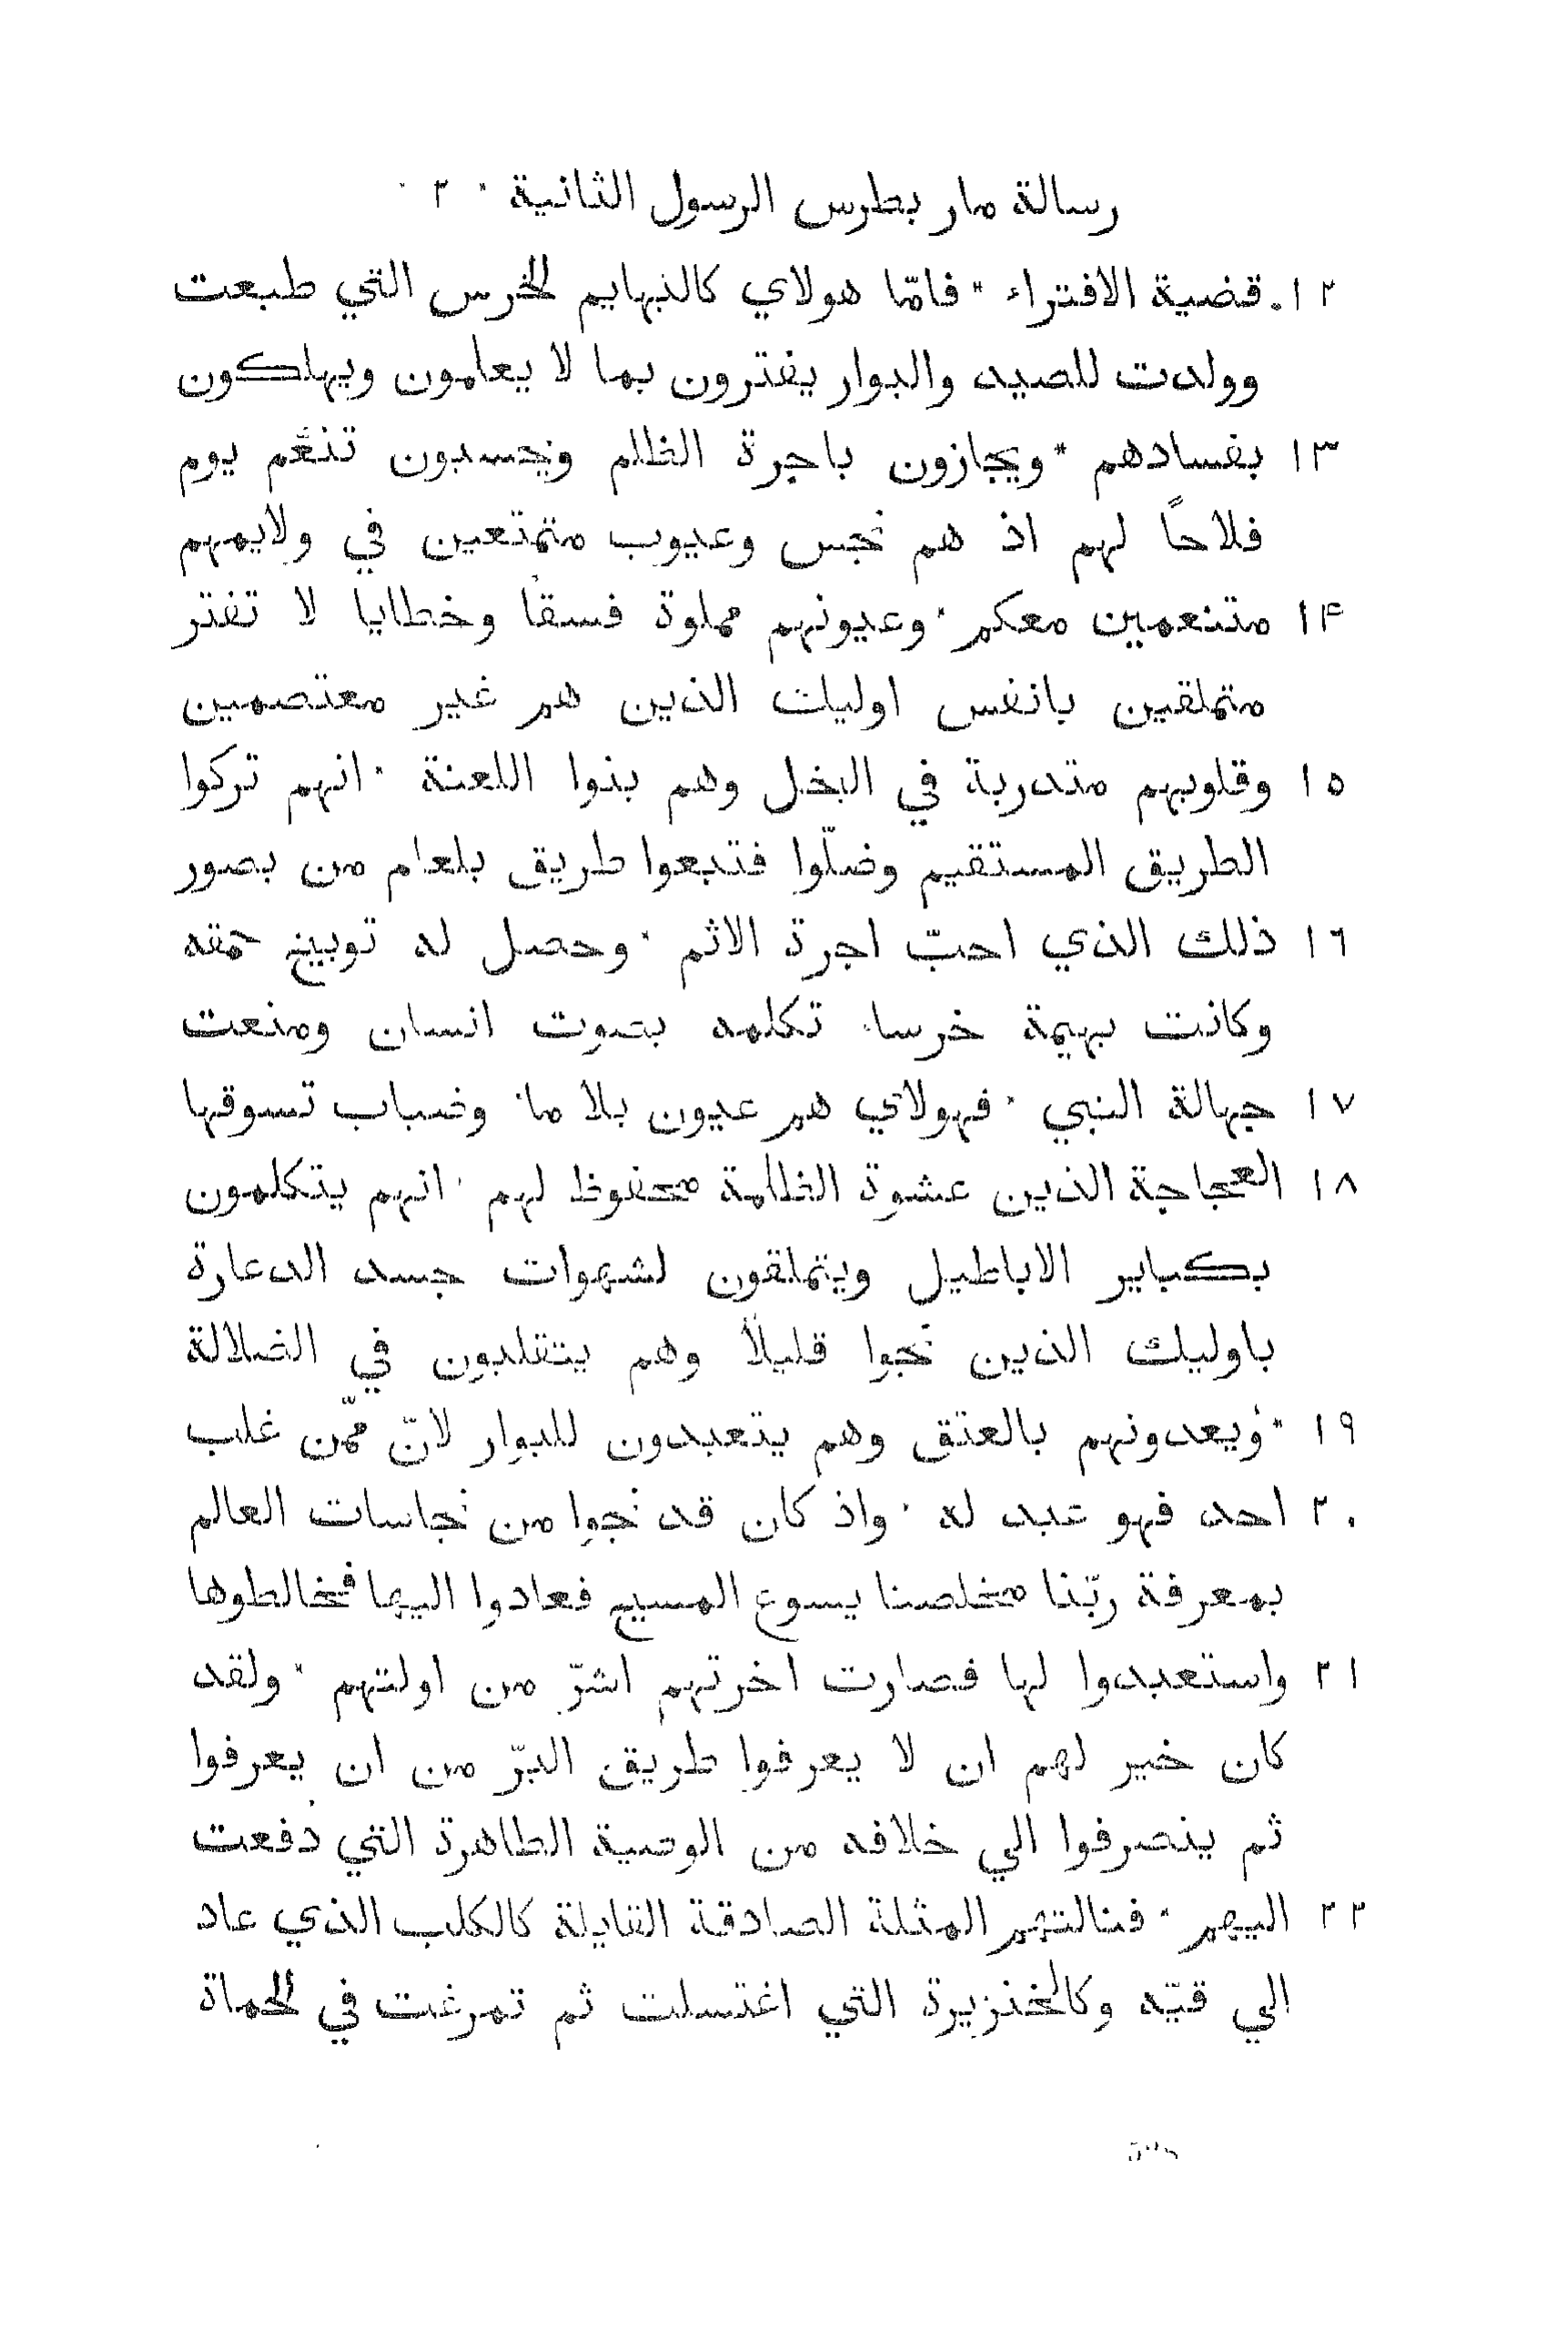 رسالة مار بطرس الرسول الثانية * ٢
١٢ قضية الافتراء * فامّا هولاي كالبهايم الخرس التي طبعت
وولدت للصيد والبوار يفترون بما لا يعلمون ويهلكون
١٣ بفسادهم * ويجازون باجرة الظلم ويحسبون تنعّم يوم
فلاحًا لهم اذ هم نجس وعيوب متمتعين في ولايمهم
١۴ متنعمين معكم * وعيونهم مملوة فسقًا وخطايا لا تفتر
متملقين بانفس اوليك الذين هم غير معتصمين
١٥ وقلوبهم متدربة في البخل وهم بنوا اللعنة * انهم تركوا
الطريق المستقيم وضلّوا فتبعوا طريق بلعام من بصور
١٦ ذلك الذي احبّ اجرة الاثم * وحصل له توبيخ حمقه
وكانت بهيمة خرساء تكلمه بصوت انسان ومنعت
١٧ جهالة النبي * فهولاي هم عيون بلا ماء وضباب تسوقها
١٨ العجاجة الذين عشوة الظلمة محفوظ لهم * انهم يتكلمون
بكباير الاباطيل ويتملقون لشهوات جسد الدعارة
باوليك الذين نجوا قليلًا وهم يتقلبون في الضلالة
١٩ * ويعدونهم بالعتق وهم يتعبدون للبوار لانّ ممّن غلب
٢٠ احد فهو عبد له * واذ كان قد نجوا من نجاسات العالم
بمعرفة ربّنا مخلصنا يسوع المسيح فعادوا اليها فخالطوها
٢١ واستعبدوا لها فصارت اخرتهم اشرّ من اولتهم * ولقد
كان خير لهم ان لا يعرفوا طريق البرّ من ان يعرفوا
ثم ينصرفوا الي خلافه من الوصية الطاهرة التي دفعت
٢٢ اليهم * فنالتهم المثلة الصادقة القايلة كالكلب الذي عاد
الي قيّه وكالخنزيرة التي اغتسلت ثم تمرغت في الحماة